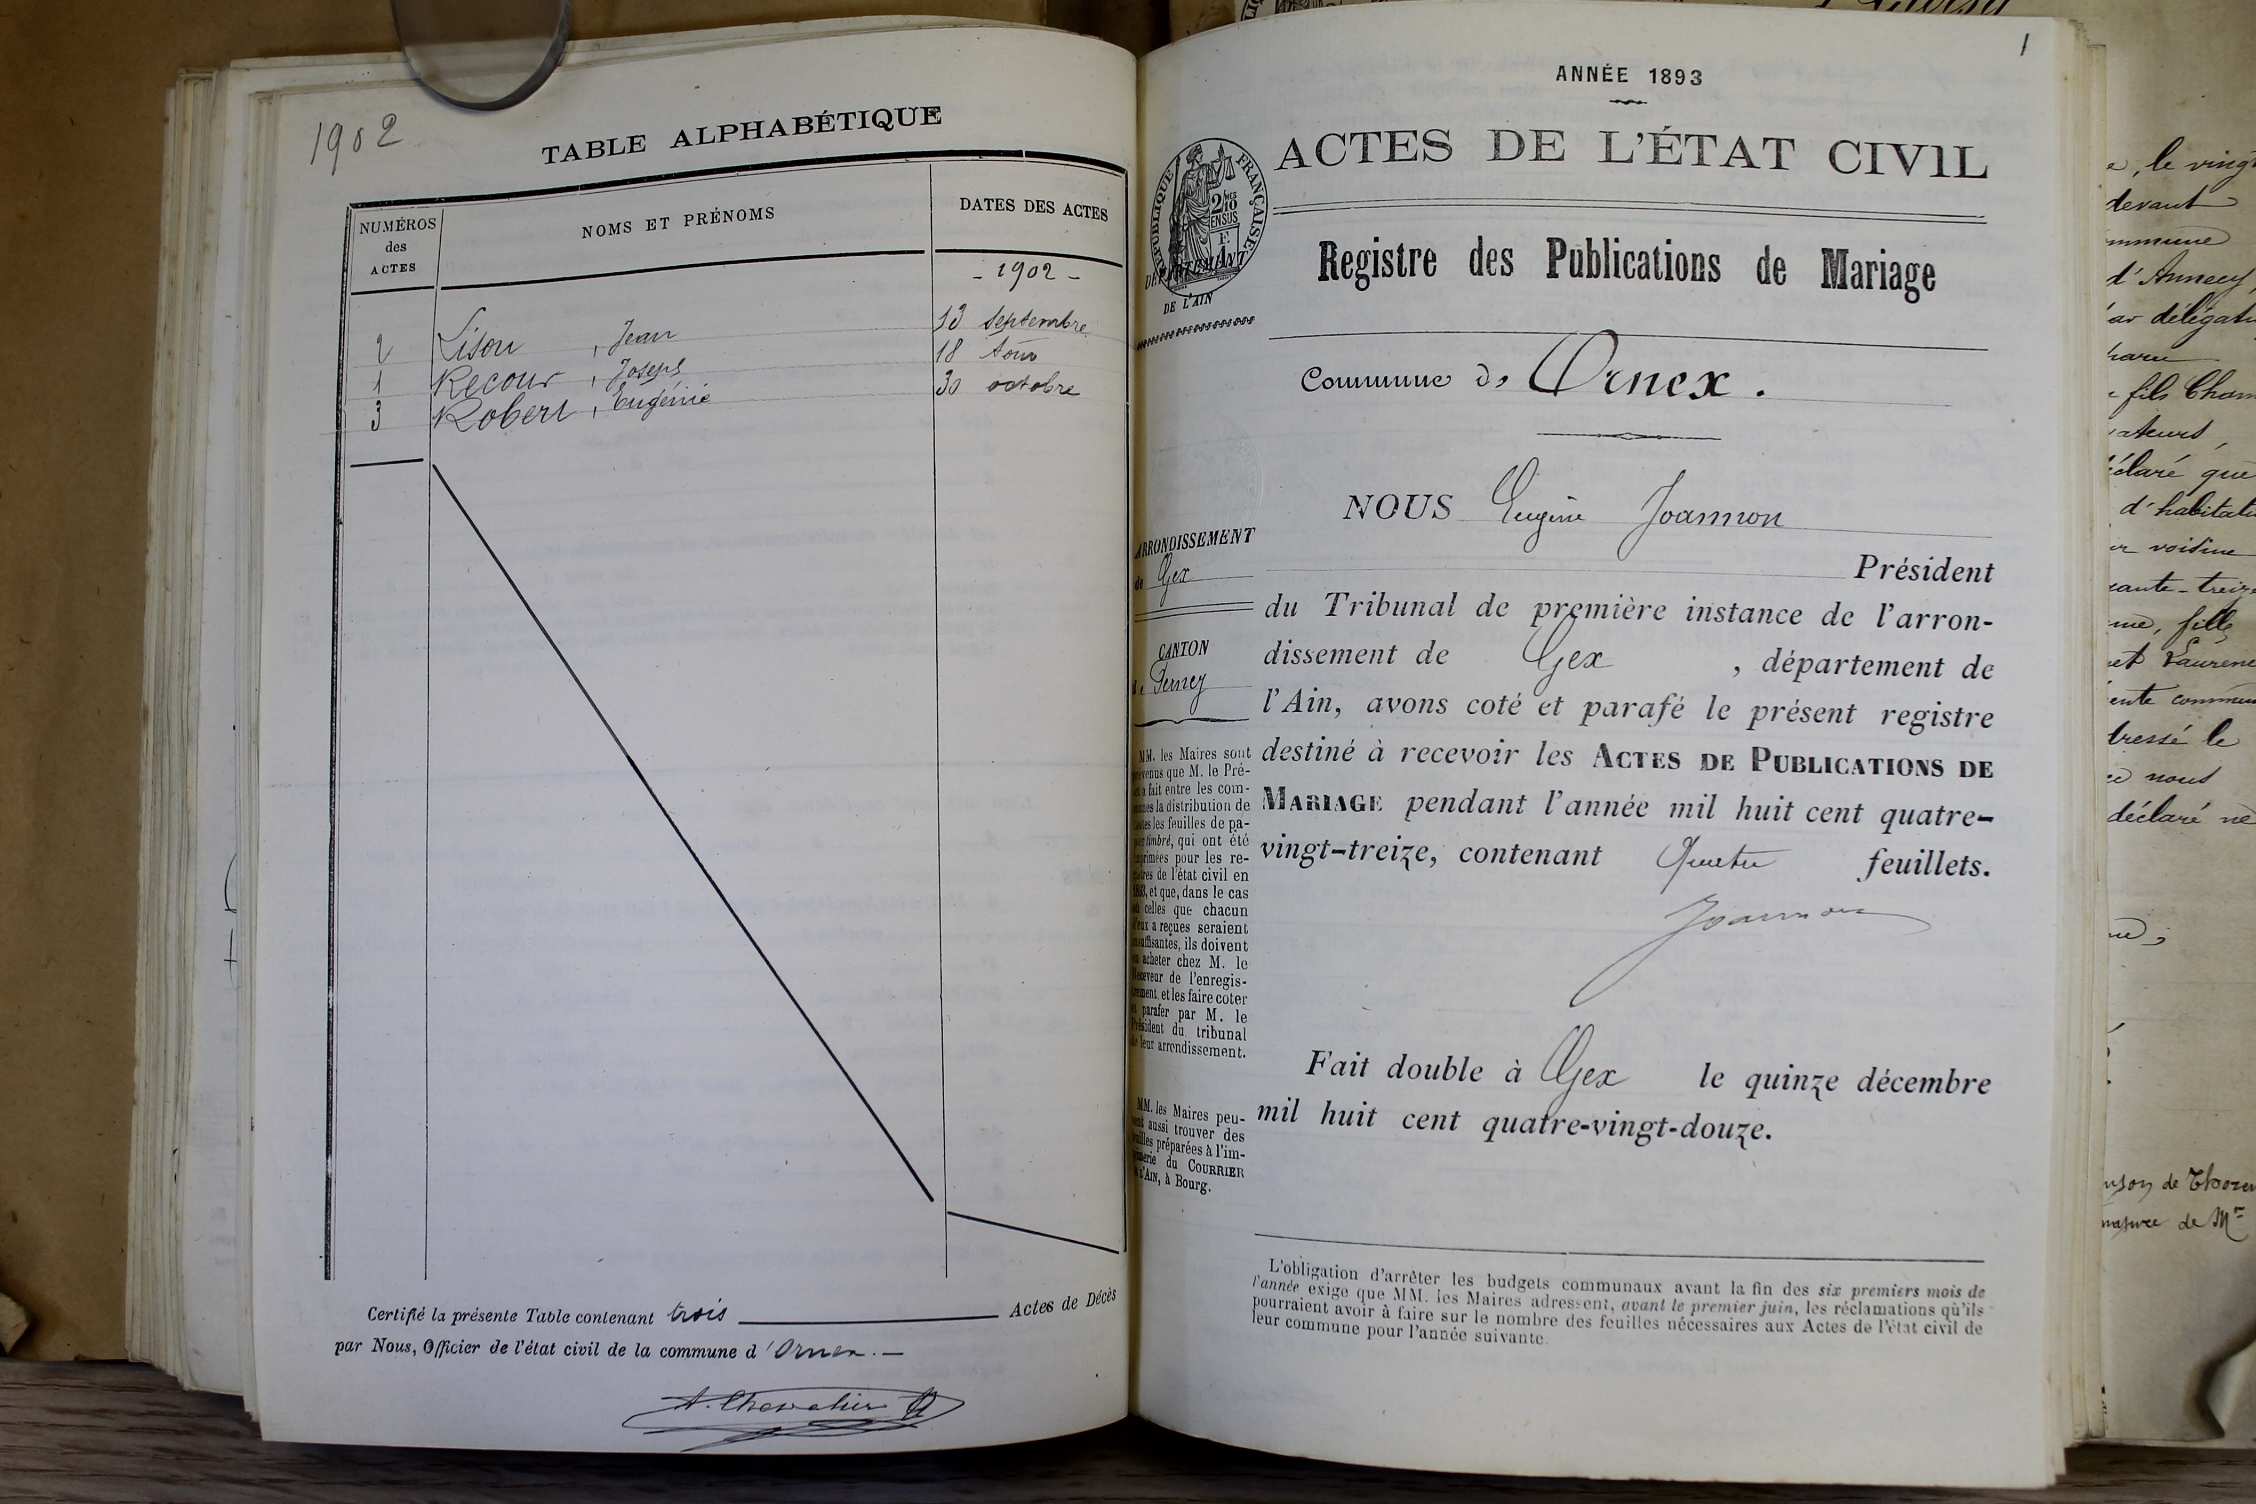 1902
TABLE ALPHABÉTIQUE
NUMÉROS
des
ACTES
NOMS ET PRÉNOMS
DATES DES ACTES
- 1902 -
2 Lison, Jean 13 septembre
1 Recour, Joseph 18 Août
3 Robert, Eugénie 30 octobre
Certifié la présente Table contenant trois Actes de Décès
par Nous, Officier de l'état civil de la commune d'Ornex.-
A. Chevalier
1
ANNÉE 1893
ACTES DE L'ÉTAT CIVIL
RÉPUBLIQUE FRANÇAISE
2
EN SUS
DÉPARTEMENT
DE L'AIN
Registre des Publications de Mariage
Commune d'Ornex.
ARRONDISSEMENT
de Gex
CANTON
de Ferney
MM. les Maires sont
prévenus que M. le Pré-
fet a fait entre les com-
munes la distribution de
toutes les feuilles de pa-
pier timbré, qui ont été
imprimées pour les re-
gistres de l'état civil en
1893, et que, dans le cas
où celles que chacun
d'eux a reçues seraient
insuffisantes, ils doivent
en acheter chez M. le
Receveur de l'enregis-
trement, et les faire coter
et parafer par M. le
Président du tribunal
de leur arrondissement.
MM. les Maires peu-
vent aussi trouver des
feuilles préparées à l'im-
primerie du COURRIER
DE L'AIN, à Bourg.
NOUS Eugène Joannon
Président
du Tribunal de première instance de l'arron-
dissement de Gex, département de
l'Ain, avons coté et parafé le présent registre
destiné à recevoir les ACTES DE PUBLICATIONS DE
MARIAGE pendant l'année mil huit cent quatre-
vingt-treize, contenant Quatre feuillets.
Joannon
Fait double à Gex le quinze décembre
mil huit cent quatre-vingt-douze.
L'obligation d'arrêter les budgets communaux avant la fin des six premiers mois de
l'année exige que MM. les Maires adressent, avant le premier juin, les réclamations qu'ils
pourraient avoir à faire sur le nombre des feuilles nécessaires aux Actes de l'état civil de
leur commune pour l'année suivante.
, le vingt
devant
d'Annecy
délégati
fils Cham
éclaré que
d'habitati
voisine
ante-treize
fille
Laurence
ente commun
dressé le
nous
déclaré ne
de Thoren
de Mr